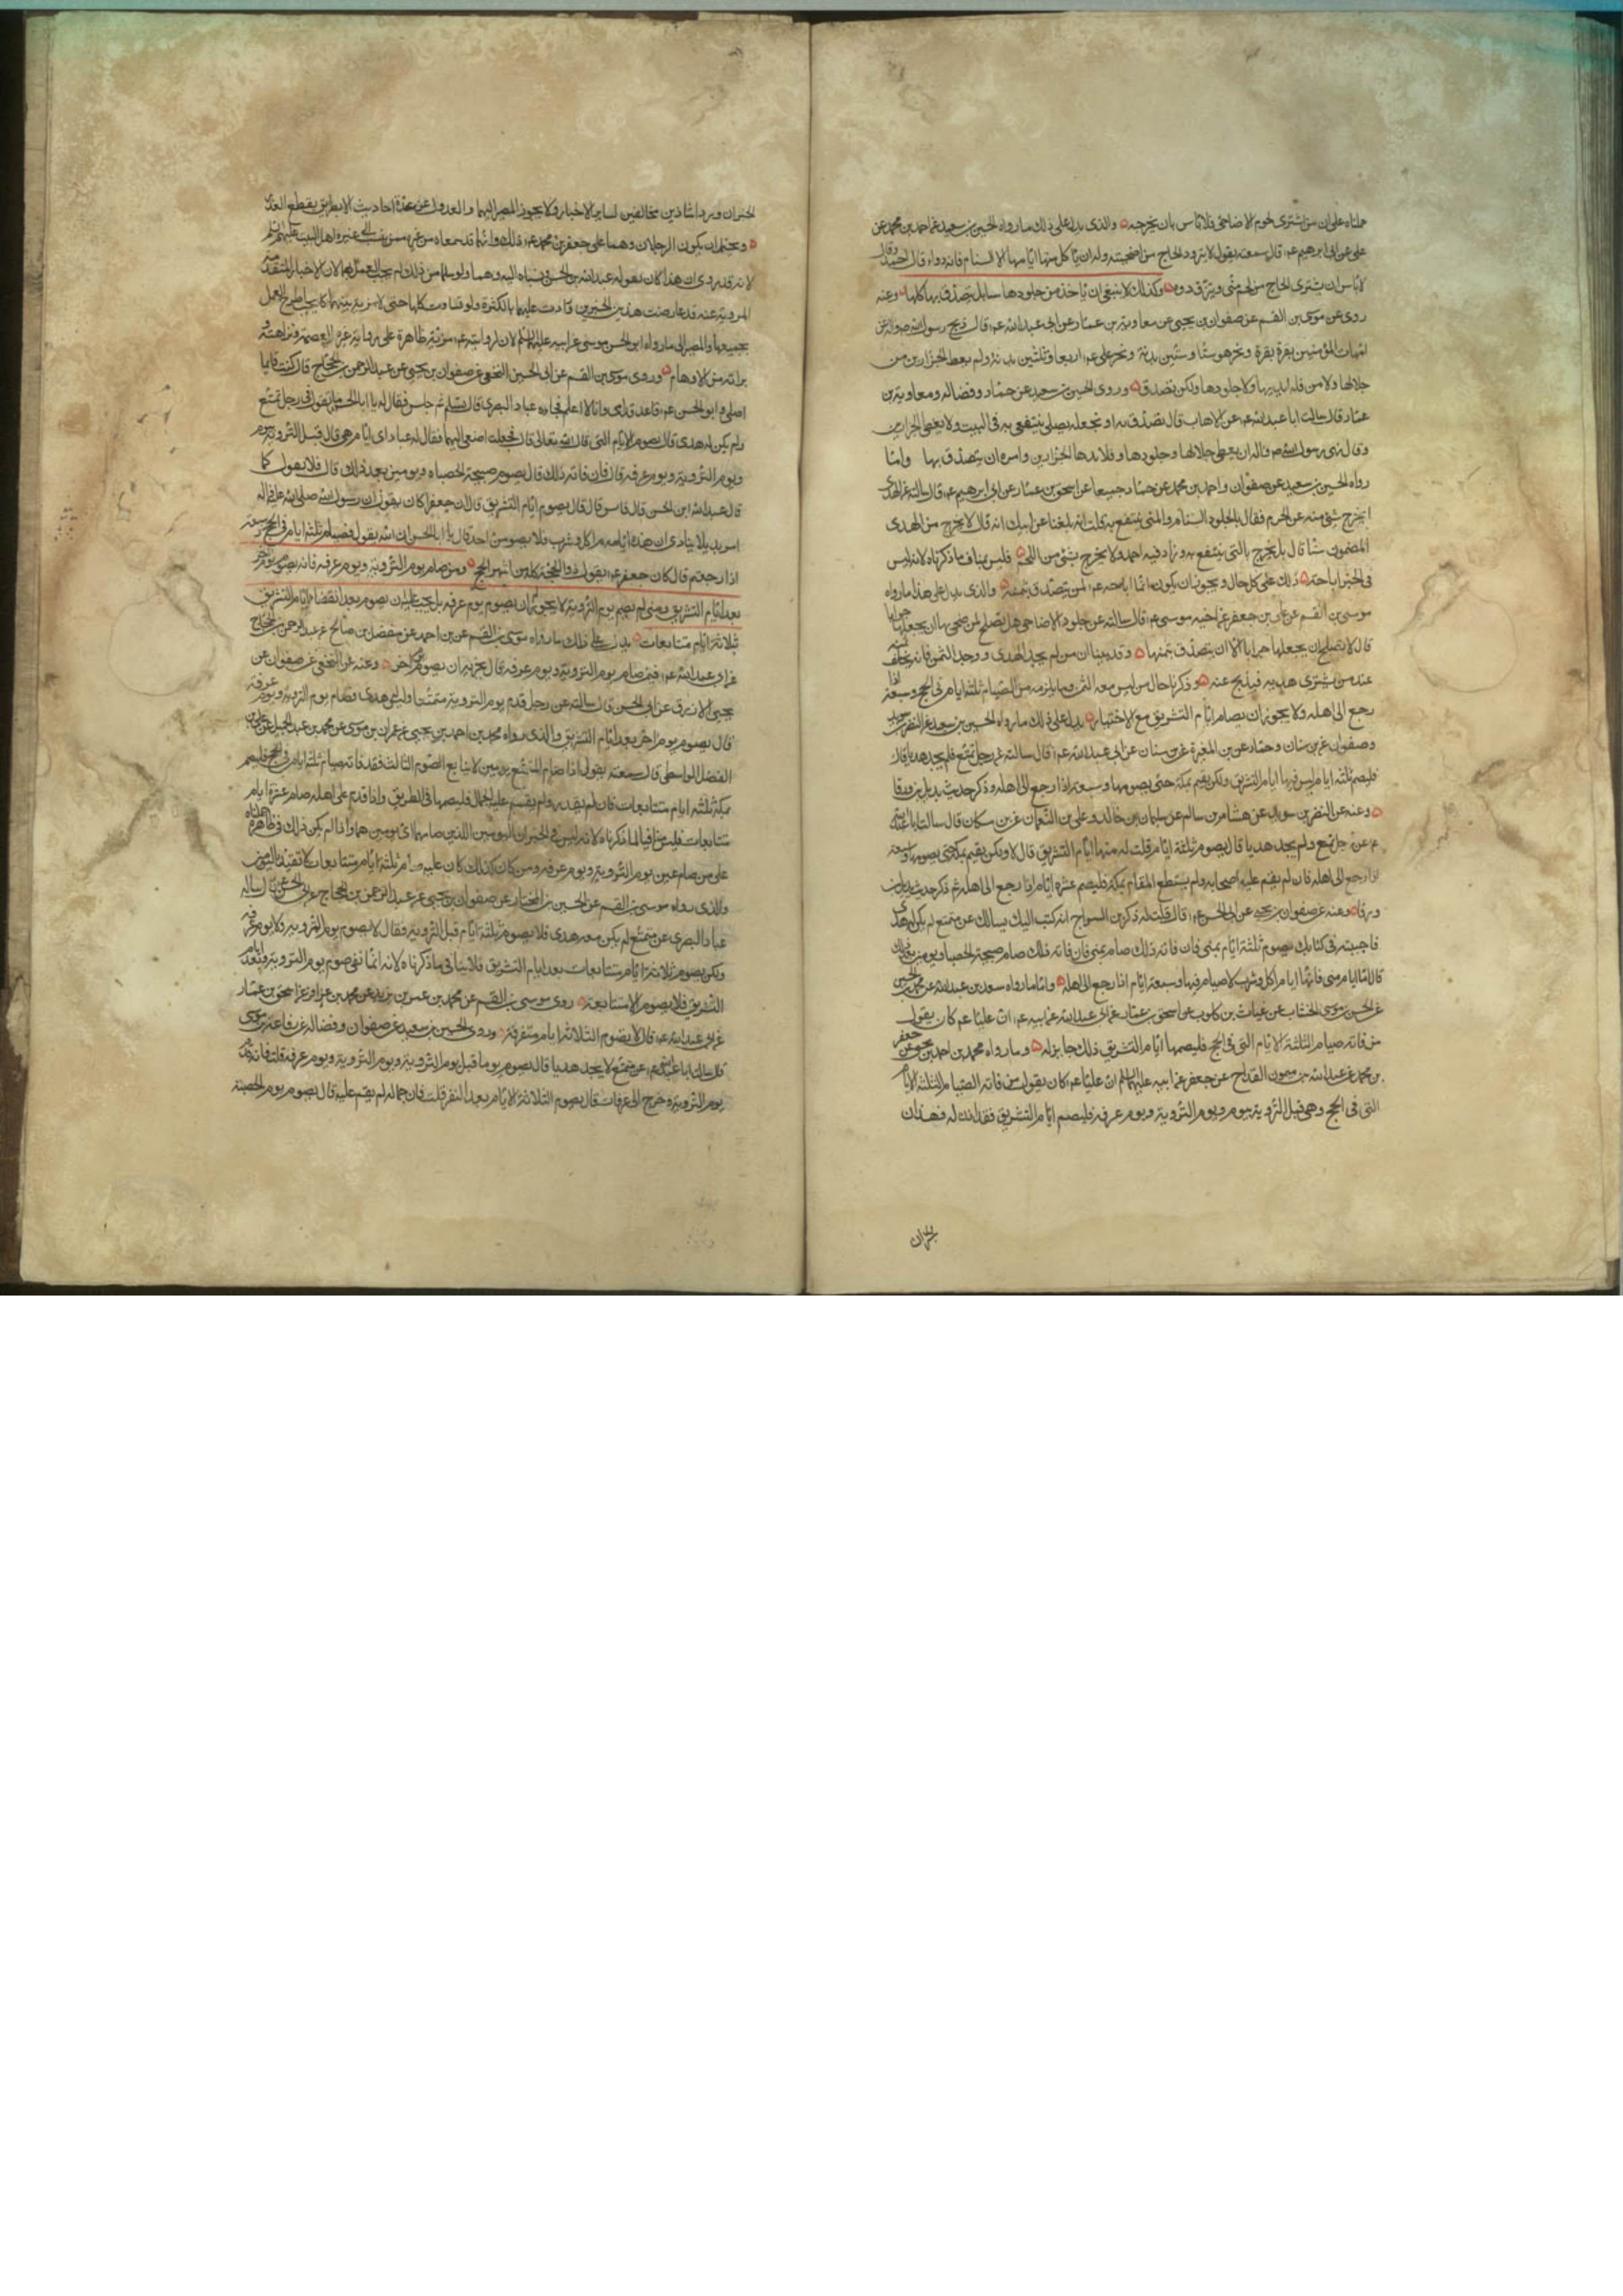 حملناه على ان من اشترى لحوم الاضاحى فلا باس بان يخرجه والذى يدل على ذلك ما رواه الحسين بن سعيد عن احمد بن محمد عن
على عن ابى ابراهيم عم قال سمعته يقول لا يتزود الحاج من اضحيته وله ان ياكل منها ايامها الا السنام فانه دواء قال احمد وقال
لا باس ان يشترى الحاج من لحم منى ويتزوده وكذلك لا ينبغى ان ياخذ من جلودها بل يتصدق بها كلها
روى عن موسى بن القسم عن صفوان بن يحيى عن معاوية بن عمار عن ابى عبد الله عم قال ذبح رسول الله عن
امهات المؤمنين بقرة بقرة ونحر هو ستا وستين بدنة ونحر على عم اربعا وثلثين بدنة ولم يعط الجزارين من
جلالها ولا من قلايدها ولا جلودها ولكن تصدق وروى الحسين بن سعيد عن حماد وفضالة ومعاوية بن
عمار قال سالت ابا عبد الله عم عن الاهاب قال تصدق به او تجعله مصلى ينتفع به فى البيت ولا يعطى الجزارين
وقال نهى رسول الله ان يعطى جلالها وجلودها وقلايدها الجزارين وامره ان يتصدق بها واما
رواه الحسين بن سعيد عن صفوان واحمد بن محمد عن حماد جميعا عن اسحق بن عمار عن ابى ابراهيم عم قال سالته عن الهدى
ايخرج شئ منه عن الحرم فقال بالجلد والسنام والشئ ينتفع به قلت انه بلغنا عن ابيك انه قال لا يخرج من الهدى
المضمون شيئا قال بل يخرج بالشئ ينتفع به وزاد فيه احمد ولا يخرج بشئ من اللحم فليس بمناف ما ذكرناه لانه ليس
فى الخبر اباحة ذلك على كل حال ويجوز ان يكون انما اباحه عم لمن يتصدق بثمنه والذى يدل على هذا ما رواه
موسى بن القسم عن على بن جعفر عن اخيه موسى عم قال سالته عن جلود الاضاحى هل تصلح لمن ضحى بها ان يجعلها جرابا
قال لا يصلح ان يجعلها جرابا الا ان يتصدق بثمنها وقد بينا ان من لم يجد الهدى ووجد الثمن فانه يخلف
عند من يشترى هديه فيذبح عنه وذكرنا حال من ليس معه الثمن وما يلزمه من الصيام ثلثة ايام فى الحج وسبعة اذا
رجع الى اهله ولا يجوز ان يصام ايام التشريق مع الاختيار يدل على ذلك ما رواه الحسين بن سعيد عن النضر بن سويد
وصفوان عن بن سنان وحماد عن بن المغيرة عن بن سنان عن ابى عبد الله عم قال سالته عن رجل تمتع فلم يجد هديا قال
فليصم ثلثة ايام ليس فيها ايام التشريق ولكن يقيم بمكة حتى يصومها وسبعة اذا رجع الى اهله وذكر حديث بديل بن ورقا
وعنه عن النضر بن سويد عن هشام بن سالم عن سليمان بن خالد وعلى بن النعمان عن بن مسكان قال سالت ابا عبد الله
عم عن رجل تمتع ولم يجد هديا قال يصوم ثلثة ايام قلت له منها ايام التشريق قال لا ولكن يقيم بمكة حتى يصومها وسبعة
اذا رجع الى اهله فان لم يقم عليه اصحابه ولم يستطع المقام بمكة فليصم عشرة ايام اذا رجع الى اهله ثم ذكر حديث بديل بن
ورقا وعنه عن صفوان بن يحيى عن ابى الحسن عم قال قلت له ذكر بن السراج انه كتب اليك يسالك عن متمتع لم يكن له هدى
فاجبته فى كتابك يصوم ثلثة ايام بمنى فان فاته ذلك صام صبيحة الحصباء ويومين بعد ذلك
قال اما ايام منى فانها ايام اكل وشرب لا صيام فيها وسبعة ايام اذا رجع الى اهله واما ما رواه سعد بن عبد الله عن محمد بن الحسين
عن الحسن بن موسى الخشاب عن غياث بن كلوب عن اسحق بن عمار عن ابى عبد الله عن ابيه عم ان عليا عم كان يقول
من فاته صيام الثلثة الايام التى فى الحج فليصمها ايام التشريق فان ذلك جايز له وما رواه محمد بن احمد بن يحيى عن جعفر
بن محمد عن عبد الله بن ميمون القداح عن جعفر عن ابيه عليهما السلم ان عليا عم كان يقول من فاته الصيام الثلثة الايام
التى فى الحج وهى قبل التروية بيوم ويوم التروية ويوم عرفة فليصم ايام التشريق فقد اذن له فهذان
الخبران
الخبران وردا شاذين مخالفين لساير الاخبار ولا يجوز المصير اليهما والعدول عن عدة احاديث الا بطريق يقطع العذر
ويحتمل ان يكون الرجلان وهما على جعفر بن محمد عم ذلك وانهما قد سمعاه من غيره ممن ينسب الى اهل البيت عليهم السلم
لانه قد روى ان هذا كان يقوله عبد الله بن الحسن فنسباه اليه وهما ولو سلما من ذلك لم يجب العمل بهما لان الاخبار المتقدمة
المروية عنه قد عارضت هذين الخبرين وزادت عليهما بالكثرة ولو تساوت كلها حتى لا مزية بينها كان يجب طرح العمل
بجميعها والمصير الى ما رواه ابو الحسن موسى عن ابيه عليهما السلم لان لروايته عم مزية ظاهرة على رواية غيره لعصمته ونزاهته و
براته من الاوهام وروى موسى بن القسم عن ابى الحسين النخعى عن صفوان بن يحيى عن عبد الرحمن بن الحجاج قال كنت قايما
اصلى وابو الحسن عم قاعد قدامى وانا لا اعلم فجاءه عباد البصرى قال فسلم ثم جلس فقال له يا ابا الحسن ما تقول فى رجل تمتع
ولم يكن له هدى قال يصوم الايام التى قال الله تعالى قال فجعلت اصغى اليهما فقال له عباد اى ايام هى قال قبل التروية بيوم
ويوم التروية ويوم عرفة قال فان فاته ذلك قال يصوم صبيحة الحصباء ويومين بعد ذلك قال فلا تقول كما
قال عبد الله ابن الحسن قال فايش قال قال يصوم ايام التشريق قال ان جعفرا كان يقول ان رسول الله صلى الله عليه واله
امر بديلا ينادى ان هذه ايام اكل وشرب فلا يصومن احد قال يا ابا الحسن ان الله يقول فصيام ثلثة ايام فى الحج وسبعة
اذا رجعتم قال كان جعفر عم يقول ذو الحجة كله من اشهر الحج ومن صام يوم التروية ويوم عرفة فانه يصوم يوما اخر
بعد ايام التشريق ومتى لم يصم يوم التروية لا يجوز له ان يصوم يوم عرفة بل يجب عليه ان يصوم بعد انقضاء ايام التشريق
ثلاثة ايام متتابعات يدل على ذلك ما رواه موسى بن القسم عن بن احمد عن مفضل بن صالح عن عبد الرحمن بن الحجاج
عن ابى عبد الله عم فيمن صام يوم التروية ويوم عرفة قال يجزيه ان يصوم يوما اخر وعنه عن النخعى عن صفوان عن
يحيى الازرق عن ابى الحسن قال سالته عن رجل قدم يوم التروية متمتعا وليس له هدى فصام يوم التروية ويوم عرفة
قال يصوم يوما اخر بعد ايام التشريق والذى رواه محمد بن احمد بن يحيى عن عمران بن موسى عن محمد بن عبد الحميد عن على بن
الفضل الواسطى قال سمعته يقول اذا صام المتمتع يومين لا يتابع الصوم الثالث فقد فاته صيام ثلثة ايام فى الحج فليصم
بمكة ثلثة ايام متتابعات فان لم يقدر ولم يقم عليه الجمال فليصمها فى الطريق واذا قدم على اهله صام عشرة ايام
متتابعات فليس منافيا لما ذكرناه لانه ليس فى الخبر ان اليومين اللذين صامهما اى يومين هما واذا لم يكن ذلك فى ظاهره حملناه
على من صام غير يوم التروية ويوم عرفة ومن كان كذلك كان عليه صيام ثلثة ايام متتابعات
والذى رواه موسى بن القسم عن الحسين بن المختار عن صفوان بن يحيى عن عبد الرحمن بن الحجاج عن ابى الحسن عم قال ساله
عباد البصرى عن متمتع لم يكن معه هدى قال يصوم ثلثة ايام قبل التروية فقال لا يصوم يوم التروية ولا يوم عرفة
ولكن يصوم ثلاثة ايام متتابعات بعد ايام التشريق فلا ينافى ما ذكرناه لانه انما نفى صوم يوم التروية وبعد ايام
التشريق فلا يصوم الا متتابعة روى موسى بن القسم عن محمد بن عمر بن يزيد عن محمد بن عذافر عن اسحق بن عمار
عن ابى عبد الله عم قال لا يصوم الثلاثة ايام متفرقة وروى الحسين بن سعيد عن صفوان وفضالة عن رفاعة بن موسى
قال سالت ابا عبد الله عم عن متمتع لا يجد هديا قال يصوم يوما قبل يوم التروية ويوم التروية ويوم عرفة قلت فانه قدم
يوم التروية وخرج الى عرفات قال يصوم الثلاثة الايام بعد النفر قلت فان جماله لم يقم عليه قال يصوم يوم الحصبة